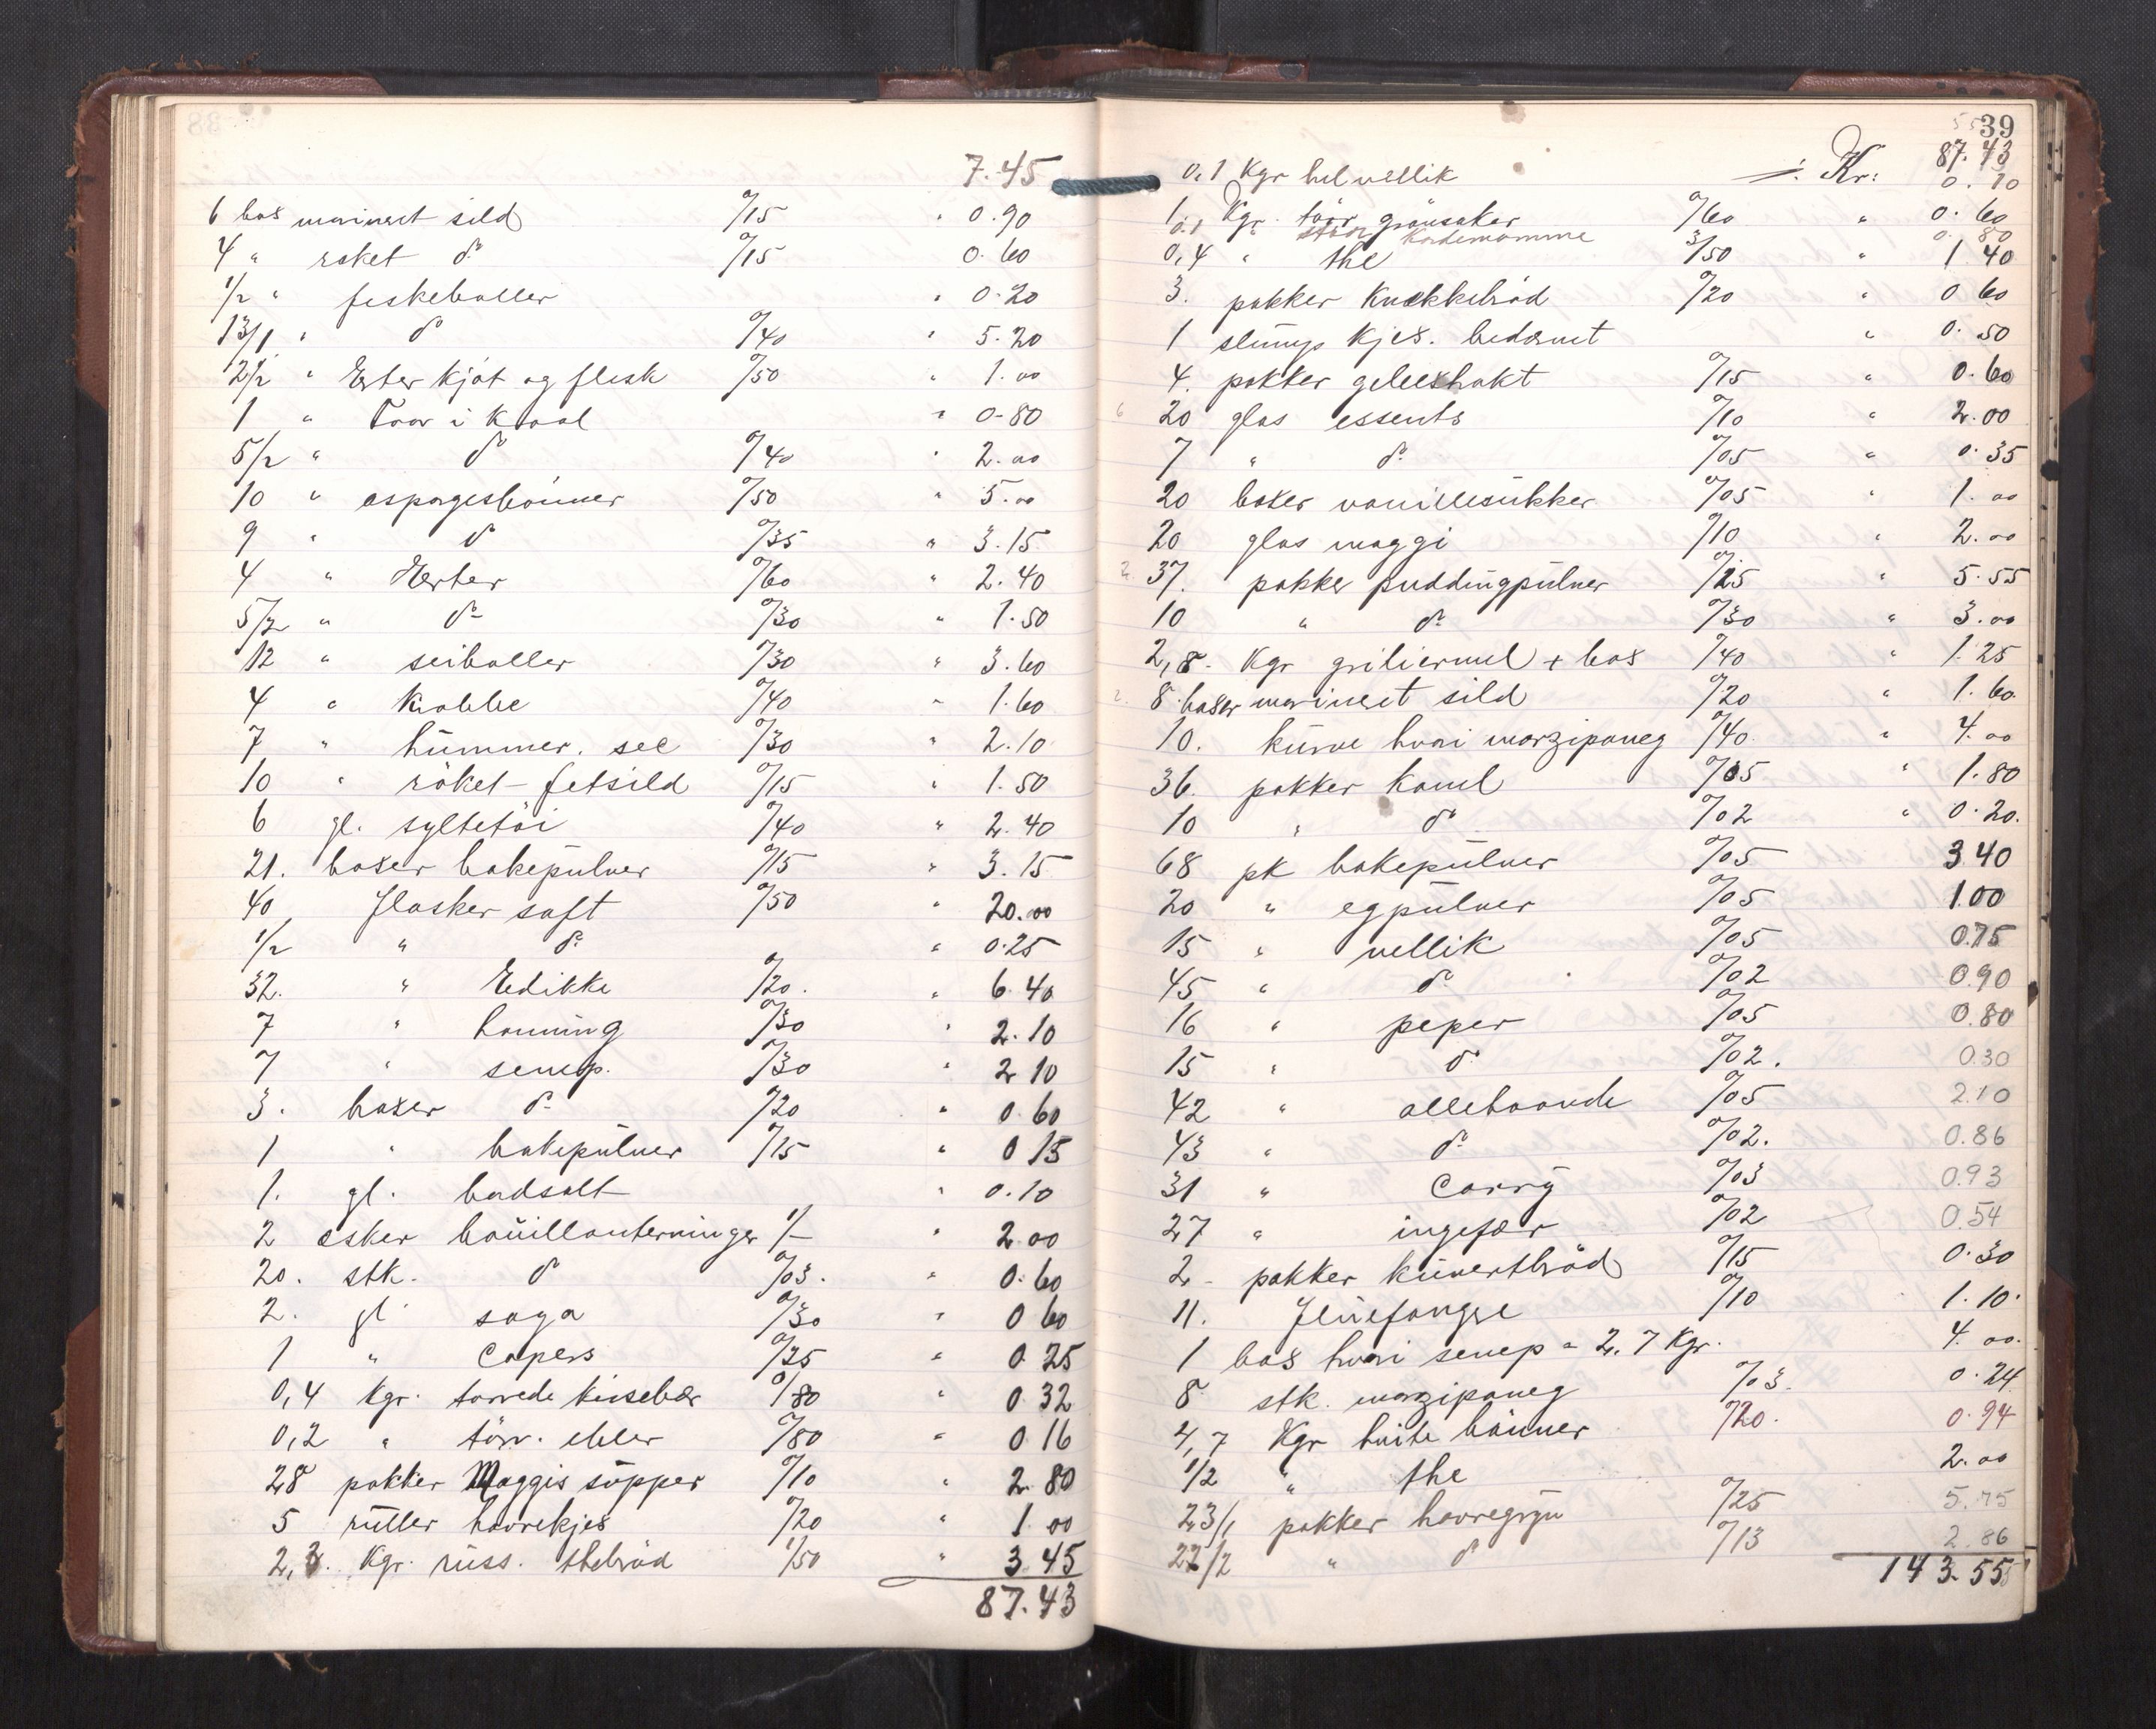 7.45
6 box marineret sild 0/15 " 0.90
4 " røket do 0/15 0.60
1/2 " fiskeboller " 0.20
13/1 " do 0/40 " 5.20
2/2 " Erter kjøt og flesk 0/50 " 1.00
1 " Faar i Kaal " 0.80
5/2 " do 0/40 " 2.00
10 " aspargesbönner 0/50 " 5.00
9 " do 0/35 " 3.15
4 " Herter 0/60 " 2.40
5/2 " do 0/30 " 1.50
12 " seiboller 0/30 " 3.60
4 " Krabbe 0/40 " 1.60
7 " hummer. 0/30 " 2.10
10 " röket fetsild 0/15 " 1.50
6 gl. syltetöi 0/40 " 2.40
21. boxer bakepulver 0/15 " 3.15
40 flasker saft 0/50 " 20.00
1/2 " do " 0.25
32. " Edikke 0/20. " 6.40
7 " honning 0/30 " 2.10
7 " senep. 0/30 " 2.10
3. boxer do 0/20 " 0.60
1 " bakepulver 0/15 " 0.15
1. gl. badsalt " 0.10
2 esker bouillonterninger 1/- " 2.00
20. stk. do 0/03. " 0.60
2. gl. soya 0/30 " 0.60
1 " Capers 0/25 " 0.25
0,4 Kgr. tørrede kirsebær 0/80 " 0.32
0,2 " törr. ebler 0/80 " 0.16
28 pakker Maggis supper 0/10 " 2.80
5 ruller havrekjes 0/20 " 1.00
2,3. Kgr. russ. thebröd 1/50 " 3.45
87.43
39
Kr: 87.43
0,1 Kgr hel nellik 0.10
1. Kgr. törr grönsaker 0/60 " 0.60
0,1 " stødt Kardemomme 0.80
0,4 " the 3/50 " 1.40
3. pakker Knækkebröd 0/20 " 0.60
1 slump kjes. bedærvet " 0.50
4. pakker 0/15 " 0.60
20 glas essents 0/10 " 2.00
7 " do 0/05 " 0.35
20 boxer vanillesukker 0/05 " 1.00
20 glas maggi 0/10 " 2.00
37. pakker puddingpulver 0/15 " 5.55
10 " do 0/30 " 3.00
2,8 Kgr griliermel + box 0/40 " 1.25
8 boxer marineret sild 0/20 " 1.60
10. kurve hvori marzipaneg 0/40 " 4.00
36. pakker Kanel 0/05 " 1.80
10 " do 0/02 " 0.20.
68 pk bakepulver 0/05 3.40
20 " egpulver 0/05 1.00
15 " nellik 0/05 0.75
45 " do 0/02 0.90
16 " peper 0/05 0.80
15 " do 0/02. 0.30
42 " allehaande 0/05 2.10
43 " do 0/02. 0.86
31 " Carry 0/03 0.93
27 " ingefær 0/02 0.54
2 pakker kuvertbröd 0/15 0.30
11. fluefangre 0/10 1.10.
1 box hvori senep = 2.7 Kgr. 4.00.
8 stk. marzipaneg 0/03. 0.24
4,7 Kgr hvite bönner 0/20. 0.94
1/2 " the 2.00
23/1 pakker havregryn 0/25 5.75
22/2 " do 0/13 2.86
143.55